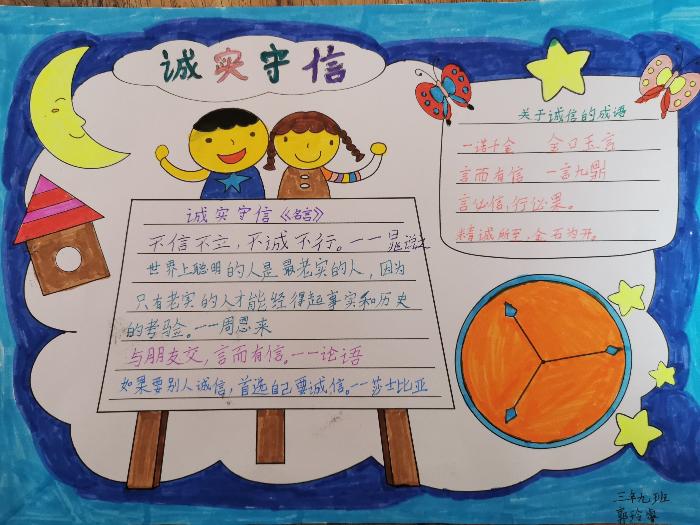 诚实守信
诚实守信《名言》
不信不立,不诚不行。——晁说之
世界上聪明的人是最老实的人,因为
只有老实的人才能经得起事实和历史
的考验。——周恩来
与朋友交,言而有信。——论语
如果要别人诚信,首先自己要诚信。——莎士比亚
关于诚信的成语
一诺千金 金口玉言
言而有信 一言九鼎
言必信,行必果。
精诚所至,金石为开。
三年九班